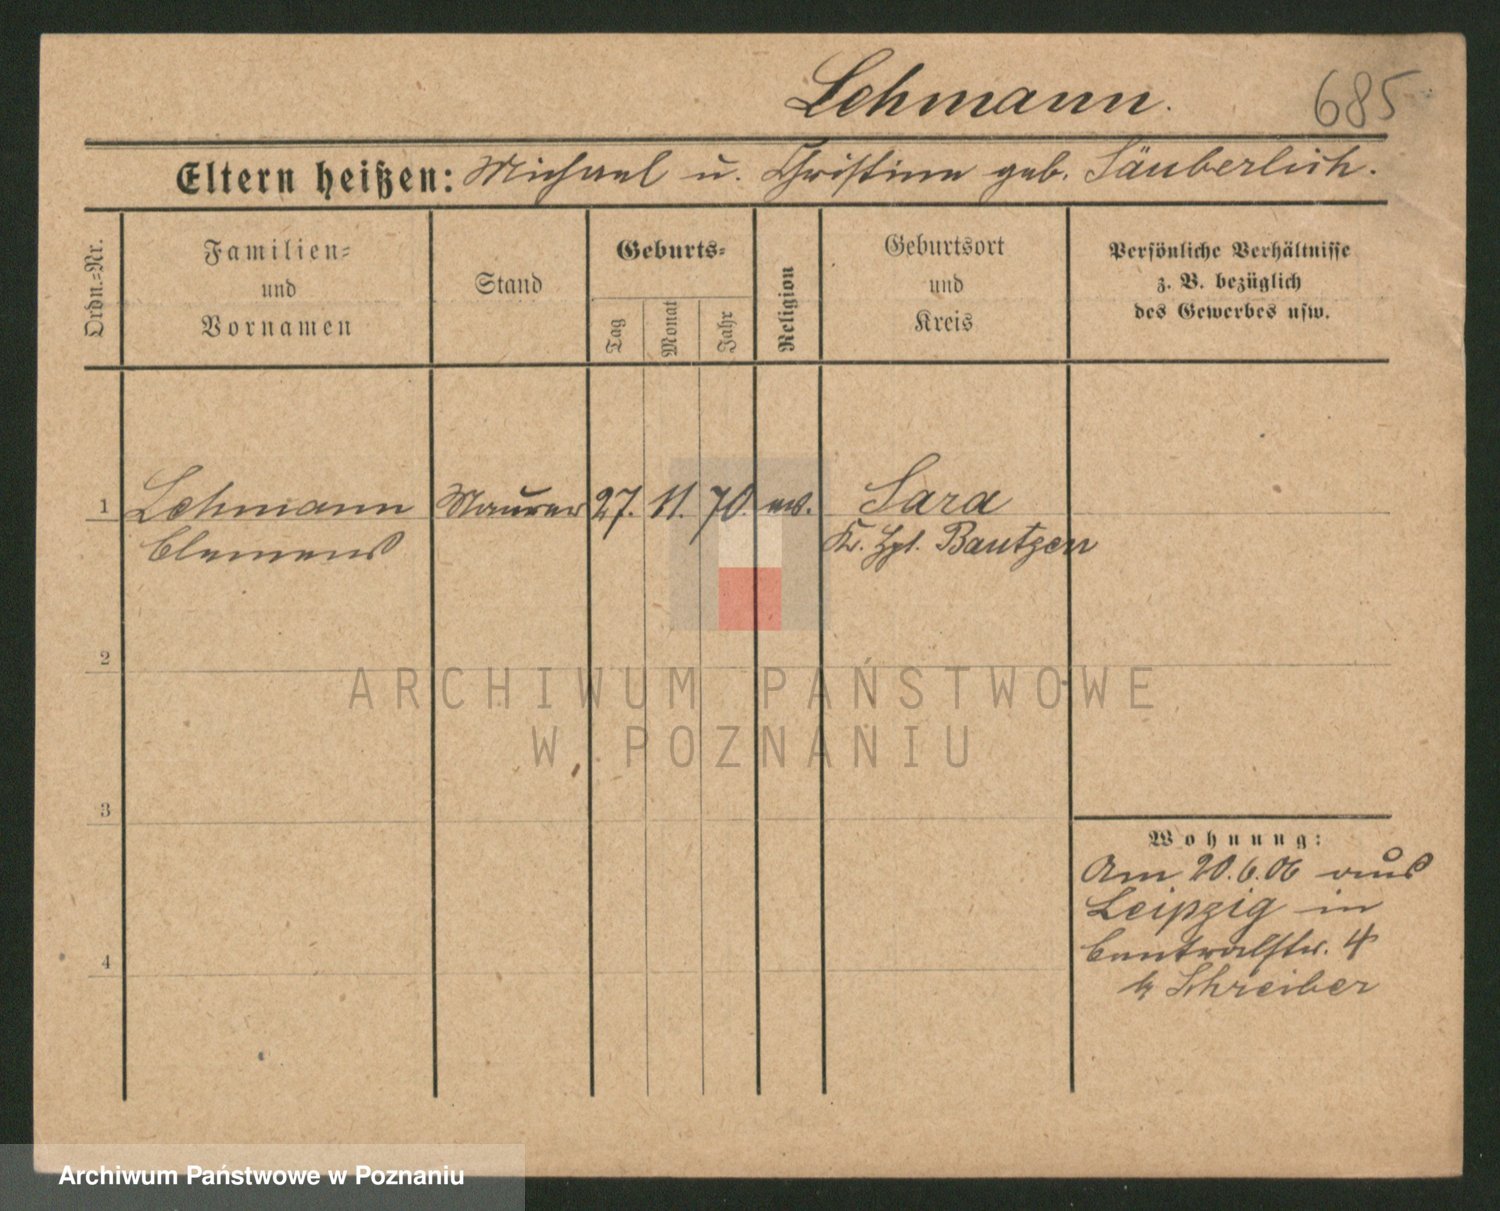 Lehmann.
685
Eltern heißen: Michael u. Christine geb. Säuberlich.
Ordn.=Nr.
Familien=
und
Vornamen
Stand
Geburts=
Tag
Monat
Jahr
Religion
Geburtsort
und
Kreis
Persönliche Verhältnisse
z. B. bezüglich
des Gewerbes usw.
1 Lehmann Maurer 27. 11. 70. ev. Sara
Clemens Bautzen
2
3
4
Wohnung:
Am 20.6.06 aus
Leipzig in
Centralstr. 4
b Schreiber
ARCHIWUM PAŃSTWOWE
W POZNANIU
Archiwum Państwowe w Poznaniu